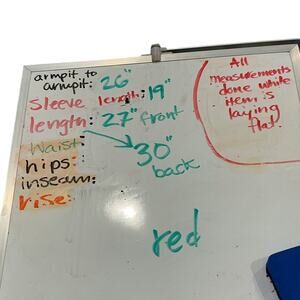 armpit to
armpit: 26"
Sleeve length: 19"
length: 27" front
30"
back
Waist:
hips:
inseam:
rise:
red
All
measurements
done while
item is
laying
flat.